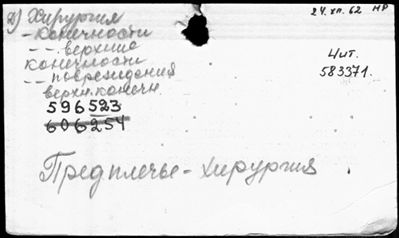 а) Хирургия
- конечности
- - верхние
конечности
- - повреждения
верхн. конечн.
596523
606254
24. XII. 62 НР
Чит.
583371.
Предплечье - хирургия